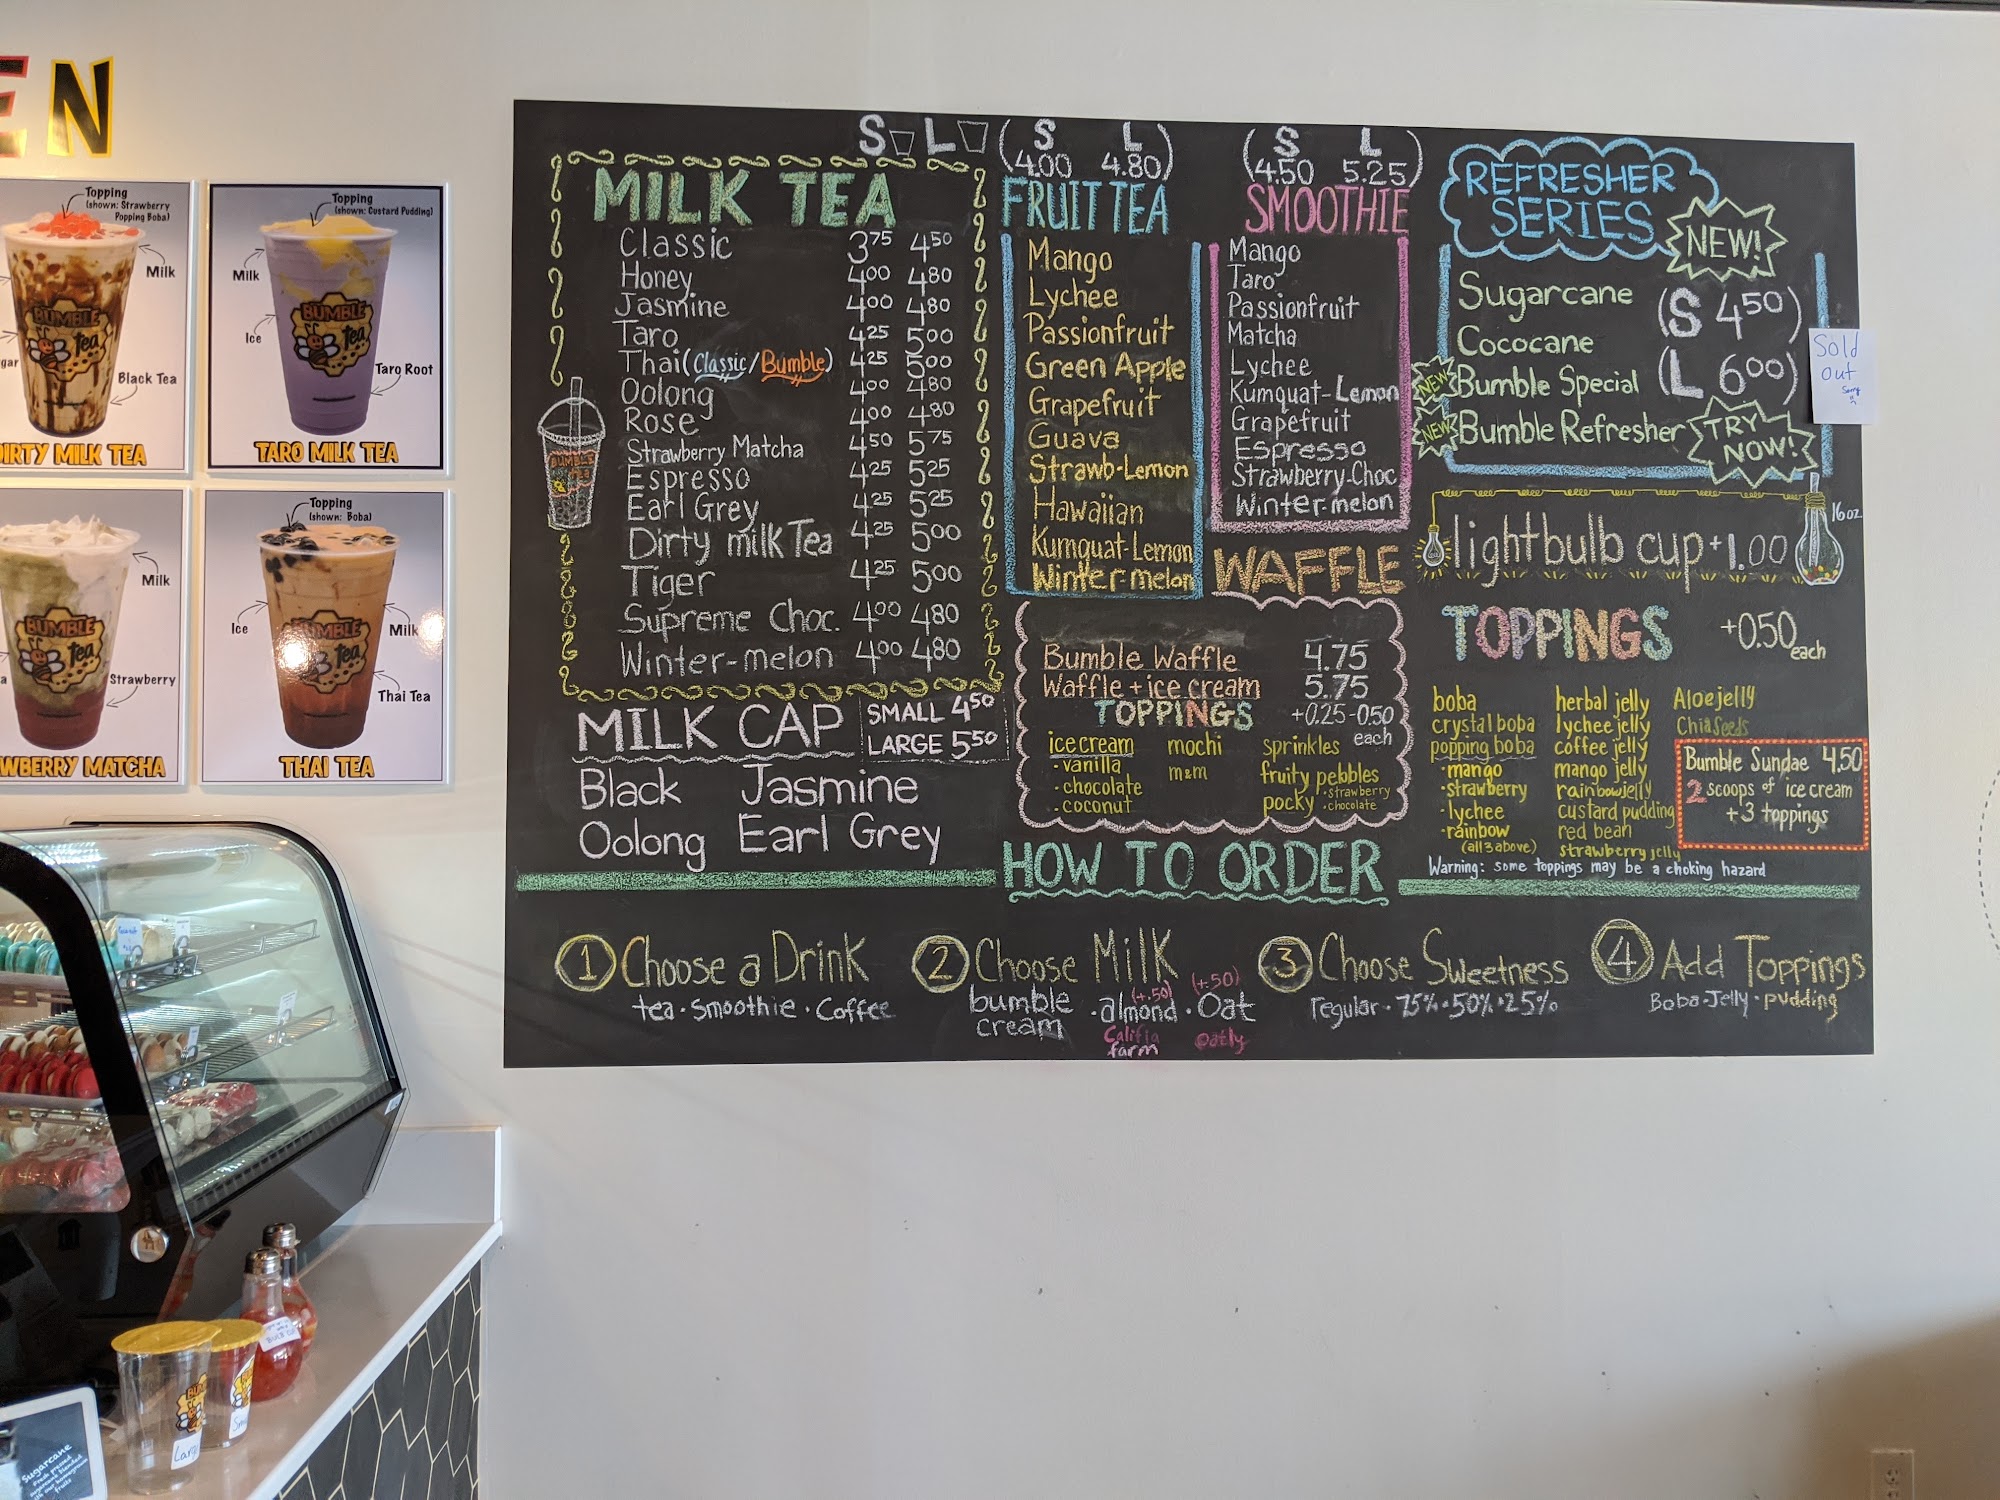 EN
Topping
(shown: Strawberry
Popping Boba)
Milk
Black Tea
BUMBLE
tea
DIRTY MILK TEA
Topping
(shown: Custard Pudding)
Milk
Ice
Taro Root
BUMBLE
tea
TARO MILK TEA
Milk
Strawberry
BUMBLE
tea
WBERRY MATCHA
Topping
(shown: Boba)
Ice
Milk
Thai Tea
BUMBLE
tea
THAI TEA
S L
MILK TEA
Classic 3.75 4.50
Honey 4.00 4.80
Jasmine 4.00 4.80
Taro 4.25 5.00
Thai (Classic/Bumble) 4.25 5.00
Oolong 4.00 4.80
Rose 4.00 4.80
Strawberry Matcha 4.50 5.75
Espresso 4.25 5.25
Earl Grey 4.25 5.25
Dirty milk Tea 4.25 5.00
Tiger 4.25 5.00
Supreme Choc. 4.00 4.80
Winter-melon 4.00 4.80
BUMBLE
MILK CAP
SMALL 4.50
LARGE 5.50
Black Jasmine
Oolong Earl Grey
(S L)
(4.00 4.80)
FRUIT TEA
Mango
Lychee
Passionfruit
Green Apple
Grapefruit
Guava
Strawb-Lemon
Hawaiian
Kumquat-Lemon
Winter-melon
(S L)
(4.50 5.25)
SMOOTHIE
Mango
Taro
Passionfruit
Matcha
Lychee
Kumquat-Lemon
Grapefruit
Espresso
Strawberry-Choc
Winter-melon
WAFFLE
Bumble Waffle 4.75
Waffle + ice cream 5.75
TOPPINGS +0.25-0.50
each
ice cream
·vanilla
·chocolate
·coconut
mochi
m&m
sprinkles
fruity pebbles
pocky ·strawberry
·chocolate
REFRESHER
SERIES
NEW!
Sugarcane
Cococane
NEW Bumble Special
NEW Bumble Refresher
(S 4.50)
(L 6.00)
TRY
NOW!
Sold
out
lightbulb cup +1.00
16oz
TOPPINGS +0.50
each
boba
crystal boba
popping boba
·mango
·strawberry
·lychee
·rainbow
(all 3 above)
herbal jelly
lychee jelly
coffee jelly
mango jelly
rainbow jelly
custard pudding
red bean
strawberry jelly
Aloe jelly
Chia Seeds
Bumble Sundae 4.50
2 scoops of ice cream
+3 toppings
Warning: some toppings may be a choking hazard
HOW TO ORDER
1 Choose a Drink
tea · smoothie · Coffee
2 Choose Milk
bumble
cream
·almond (+.50)
Califia
farm
·Oat (+.50)
oatly
3 Choose Sweetness
regular · 75% · 50% · 25%
4 Add Toppings
Boba · Jelly · pudding
Sugarcane